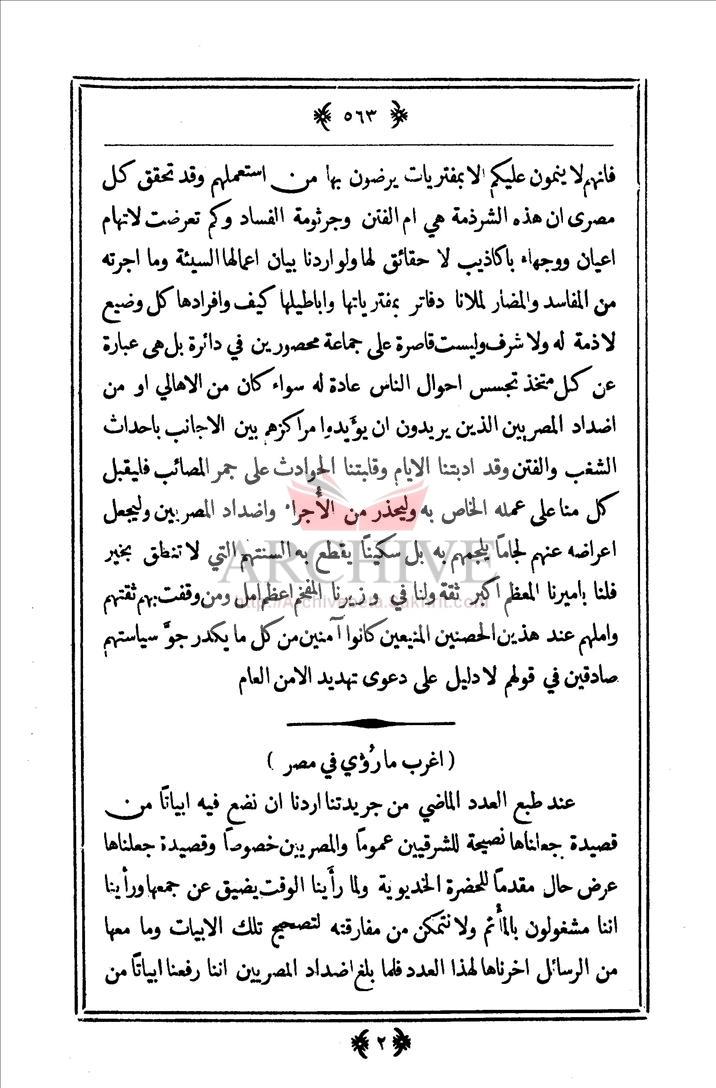 ٥٦٣
فانهم لا ينمون عليكم الا بمفتريات يرضون بها من استعملهم وقد تحقق كل
مصرى ان هذه الشرذمة هي ام الفتن وجرثومة الفساد وكم تعرضت لاتهام
اعيان ووجهاء باكاذيب لا حقائق لها ولو اردنا بيان اعمالها السيئة وما اجرته
من المفاسد والمضار لملانا دفاتر بمفترياتها واباطيلها كيف وافرادها كل وضيع
لا ذمة له ولا شرف وليست قاصرة على جماعة محصورين في دائرة بل هى عبارة
عن كل متخذ تجسس احوال الناس عادة له سواء كان من الاهالي او من
اضداد المصريين الذين يريدون ان يؤيدوا مراكزهم بين الاجانب باحداث
الشغب والفتن وقد ادبتنا الايام وقلبتنا الحوادث على جمر المصائب فليقبل
كل منا على عمله الخاص به وليحذر من الأُجراء واضداد المصريين وليجعل
اعراضه عنهم لجاماً يلجمهم به بل سكيناً يقطع به السنتهم التي لا تنطق بخير
فلنا باميرنا المعظم اكبر ثقة ولنا في وزيرنا المفخم اعظم امل ومن وقفت بهم ثقتهم
واملهم عند هذين الحصنين المنيعين كانوا آمنين من كل ما يكدر جوَّ سياستهم
صادقين في قولهم لا دليل على دعوى تهديد الامن العام
( اغرب ما رُؤي في مصر )
عند طبع العدد الماضي من جريدتنا اردنا ان نضع فيه ابياتاً من
قصيدة جعلناها نصيحة للشرقيين عموماً والمصريين خصوصاً وقصيدة جعلناها
عرض حال مقدماً للحضرة الخديوية ولما رأينا الوقت يضيق عن جمعها ورأينا
اننا مشغولون بالمأتم ولا نتمكن من مفارقته لتصحيح تلك الابيات وما معها
من الرسائل اخرناها لهذا العدد فلما بلغ اضداد المصريين اننا رفعنا ابياتاً من
٢
ARCHIVE
http://Archivebeta.Sakhrit.com